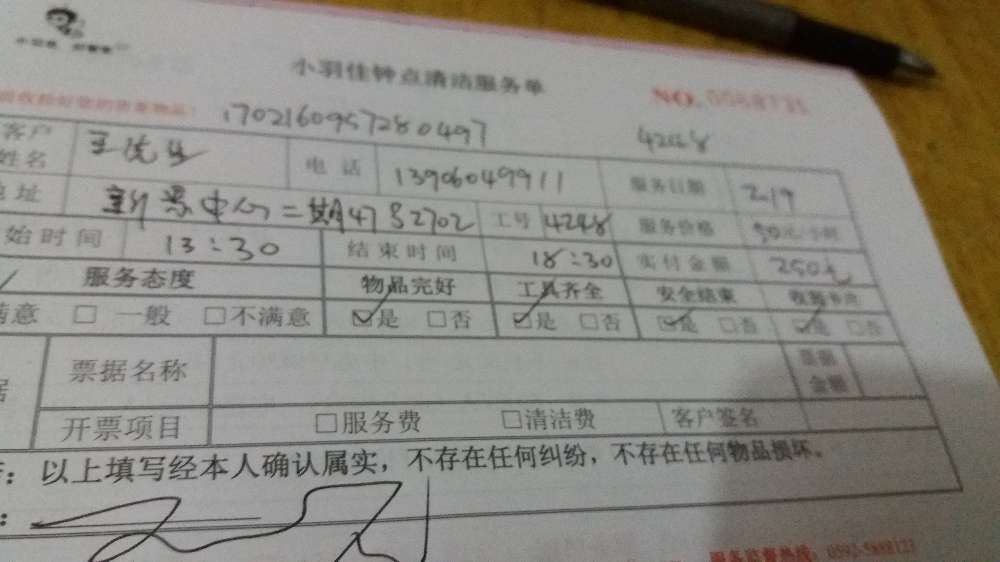 小羽佳钟点清洁服务单 NO.0568735
170216095728 0497 4248
客户姓名 王先生 电话 13906049911 服务日期 2.19
地址 新景中心二期47号2702 工号 4248 服务价格 50元/小时
始时间 13:30 结束时间 18:30 实付金额 250元
服务态度 物品完好 工具齐全 安全结束
满意 □ 一般 □不满意 ☑是 □否 ☑是 □否 ☑是 □否 ☑是 □否
据 票据名称 票据金额
开票项目 □服务费 □清洁费 客户签名
：以上填写经本人确认属实，不存在任何纠纷，不存在任何物品损坏。
服务监督热线：0592-5888123